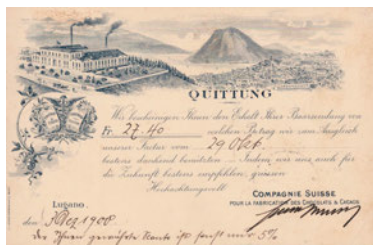 QUITTUNG
Wir bescheinigen Ihnen den Erhalt Ihrer Baarsendung von
Fr. 27.40 welchen Betrag wir zum Ausgleich
unserer Factur vom 29 Okt.
bestens dankend benützten. Indem wir uns auch für
die Zukunft bestens empfohlen, grüssen
Hochachtungsvoll
COMPAGNIE SUISSE
POUR LA FABRICATION DES CHOCOLATS & CACAOS
Lugano,
den 3 Dez 1900
der Ihnen gewährte Sconto ist sonst nur 5%